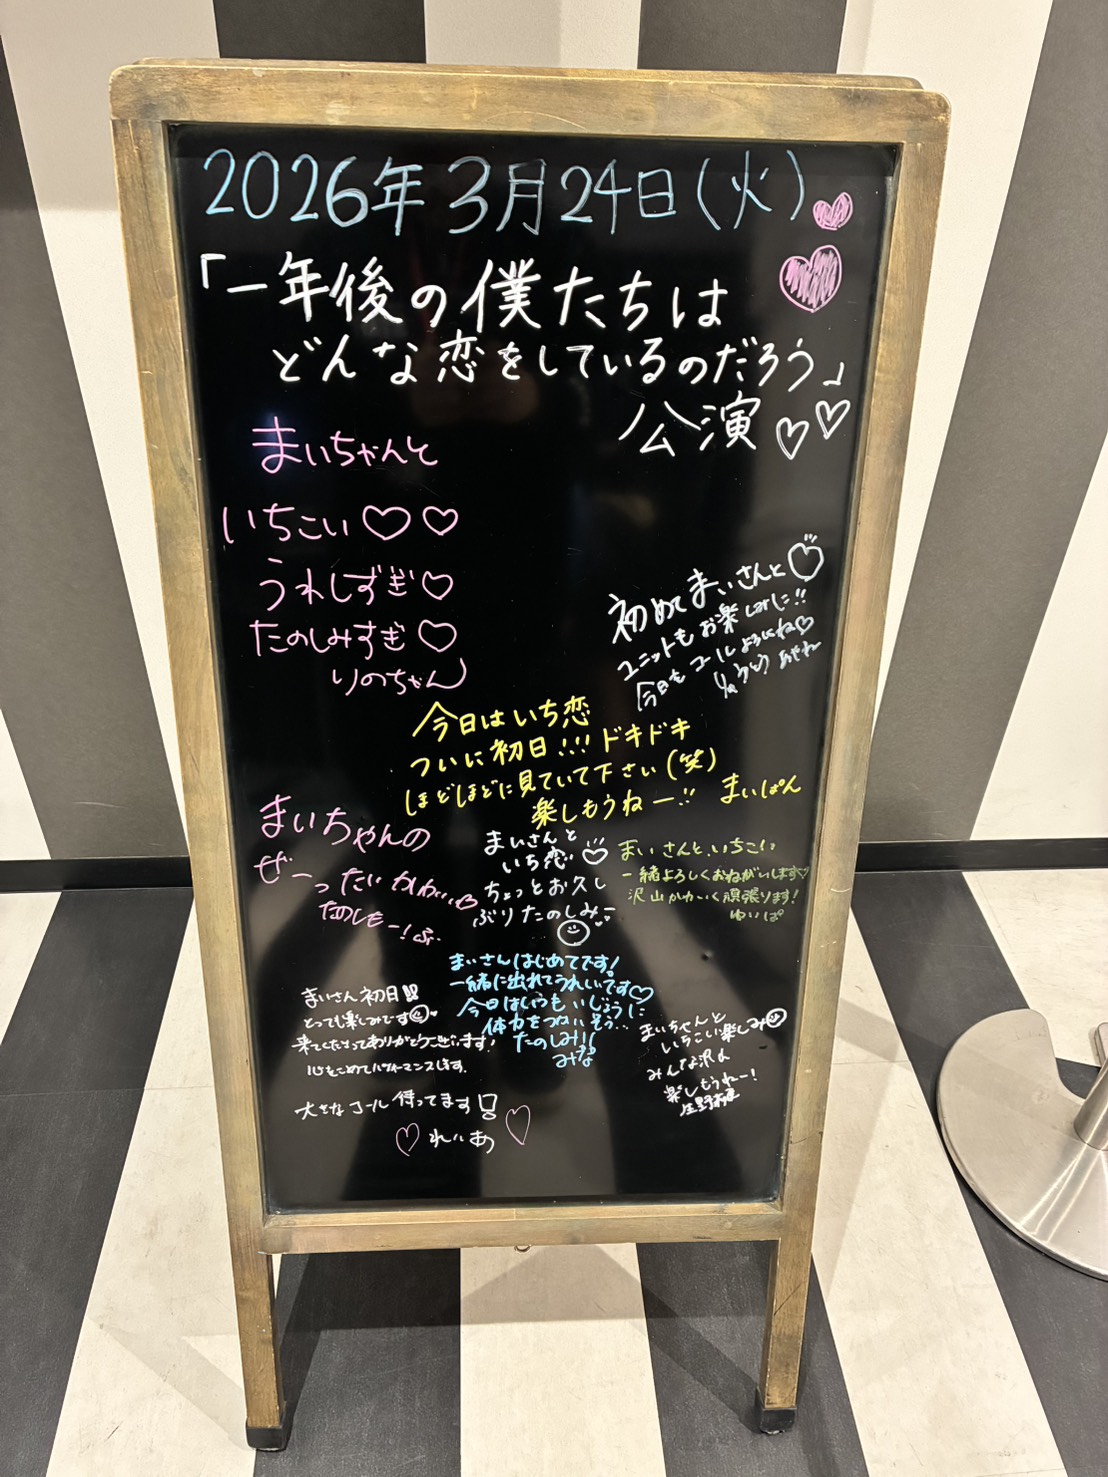 2026年3月24日(火)
「一年後の僕たちは
どんな恋をしているのだろう」
公演
まいちゃんと
いちこい♡♡
うれしずぎ♡
たのしみすぎ♡
りのちゃん
初めてまいさんと♡
ユニットもお楽しみに!!
今日もコールよろしくね♡
あやね
今日はいち恋
ついに初日!!! ドキドキ
ほどほどに見ていて下さい(笑)
楽しもうねー!! まいぱん
まいちゃんの
ぜーったいかわいい
たのしもー!
まいさんと
いち恋♡
ちょっとお久し
ぶりたのしみー
まいさんと、いちこい
一緒よろしくおねがいします♡
沢山かわいく頑張ります!
ゆいぱ
まいさんはじめてです!
一緒に出れてうれしいです♡
今日はいつもいじょうに
体力をつかいそう…
たのしみ!!
みな
まいさん初日!!
とっても楽しみです
来てくださってありがとうございます!
心をこめてパフォーマンスします。
大きなコール待ってます!
♡れいあ♡
まいちゃんと
いちこい楽しみ
みんな沢山
楽しもうねー!